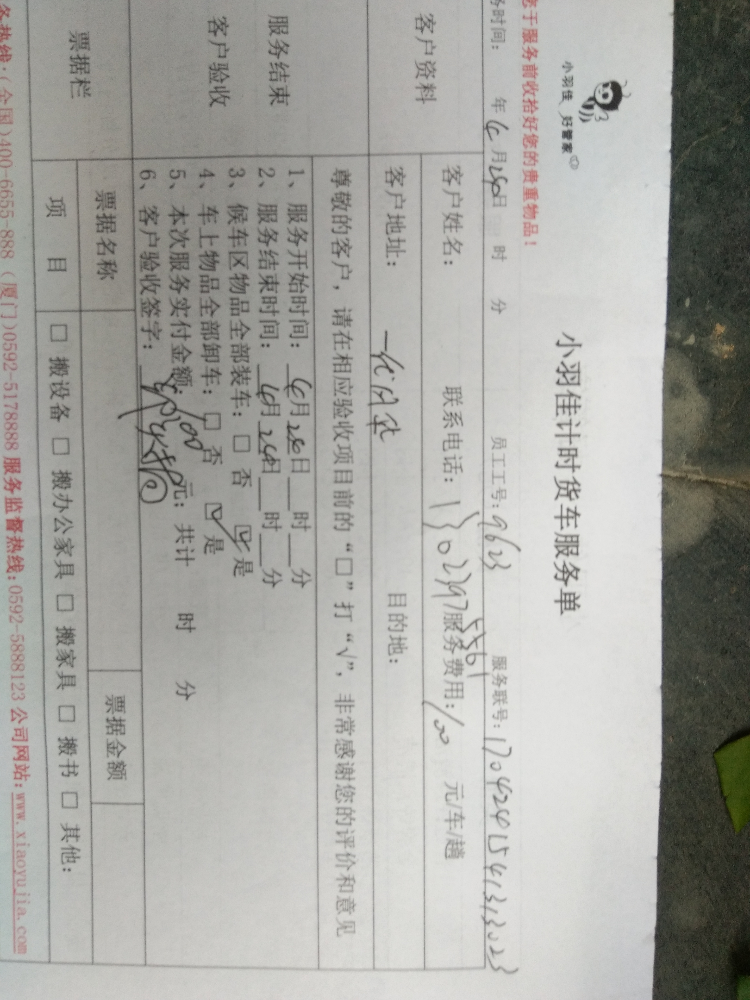 小羽佳 好管家
小羽佳计时货车服务单
您于服务前收拾好您的贵重物品！
务时间： 年 4月24日 时 分 员工工号：9623 服务联号：1704241541313023
客户资料
客户姓名： 联系电话：13023975561 服务费用：100 元/车/趟
客户地址： 目的地：
尊敬的客户，请在相应验收项目前的“□”打“√”，非常感谢您的评价和意见
服务结束
客户验收
1、服务开始时间：4月24日__时__分
2、服务结束时间：4月24日__时__分
3、候车区物品全部装车：□ 否 ☑是
4、车上物品全部卸车：□ 否 ☑是
5、本次服务实付金额：100元；共计 时 分
6、客户验收签字：
票据栏
票据名称 票据金额
项 目 □ 搬设备 □ 搬办公家具 □ 搬家具 □ 搬书 □ 其他：
务热线：(全国)400-6655-888 (厦门)0592-5178888 服务监督热线：0592-5888123 公司网站：www.xiaoyujia.com